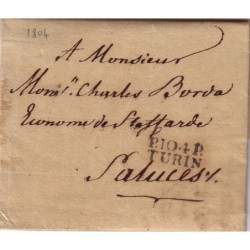 1804
A Monsieur
Monsr. Charles Borda
Econome de Staffarde
P.104.P.
TURIN
Saluces